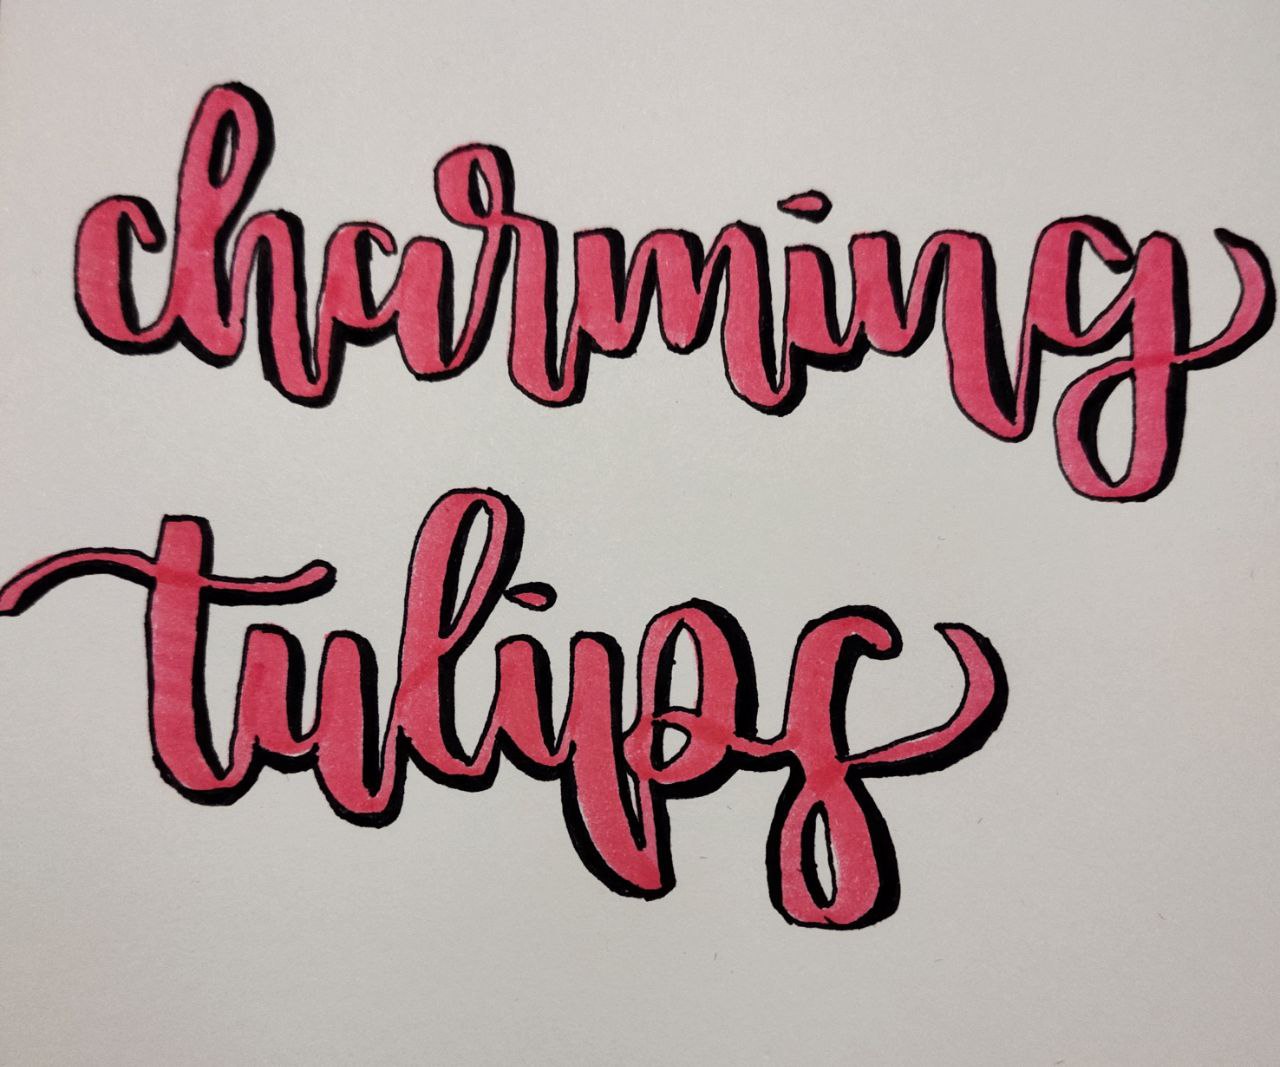 charming
tulips